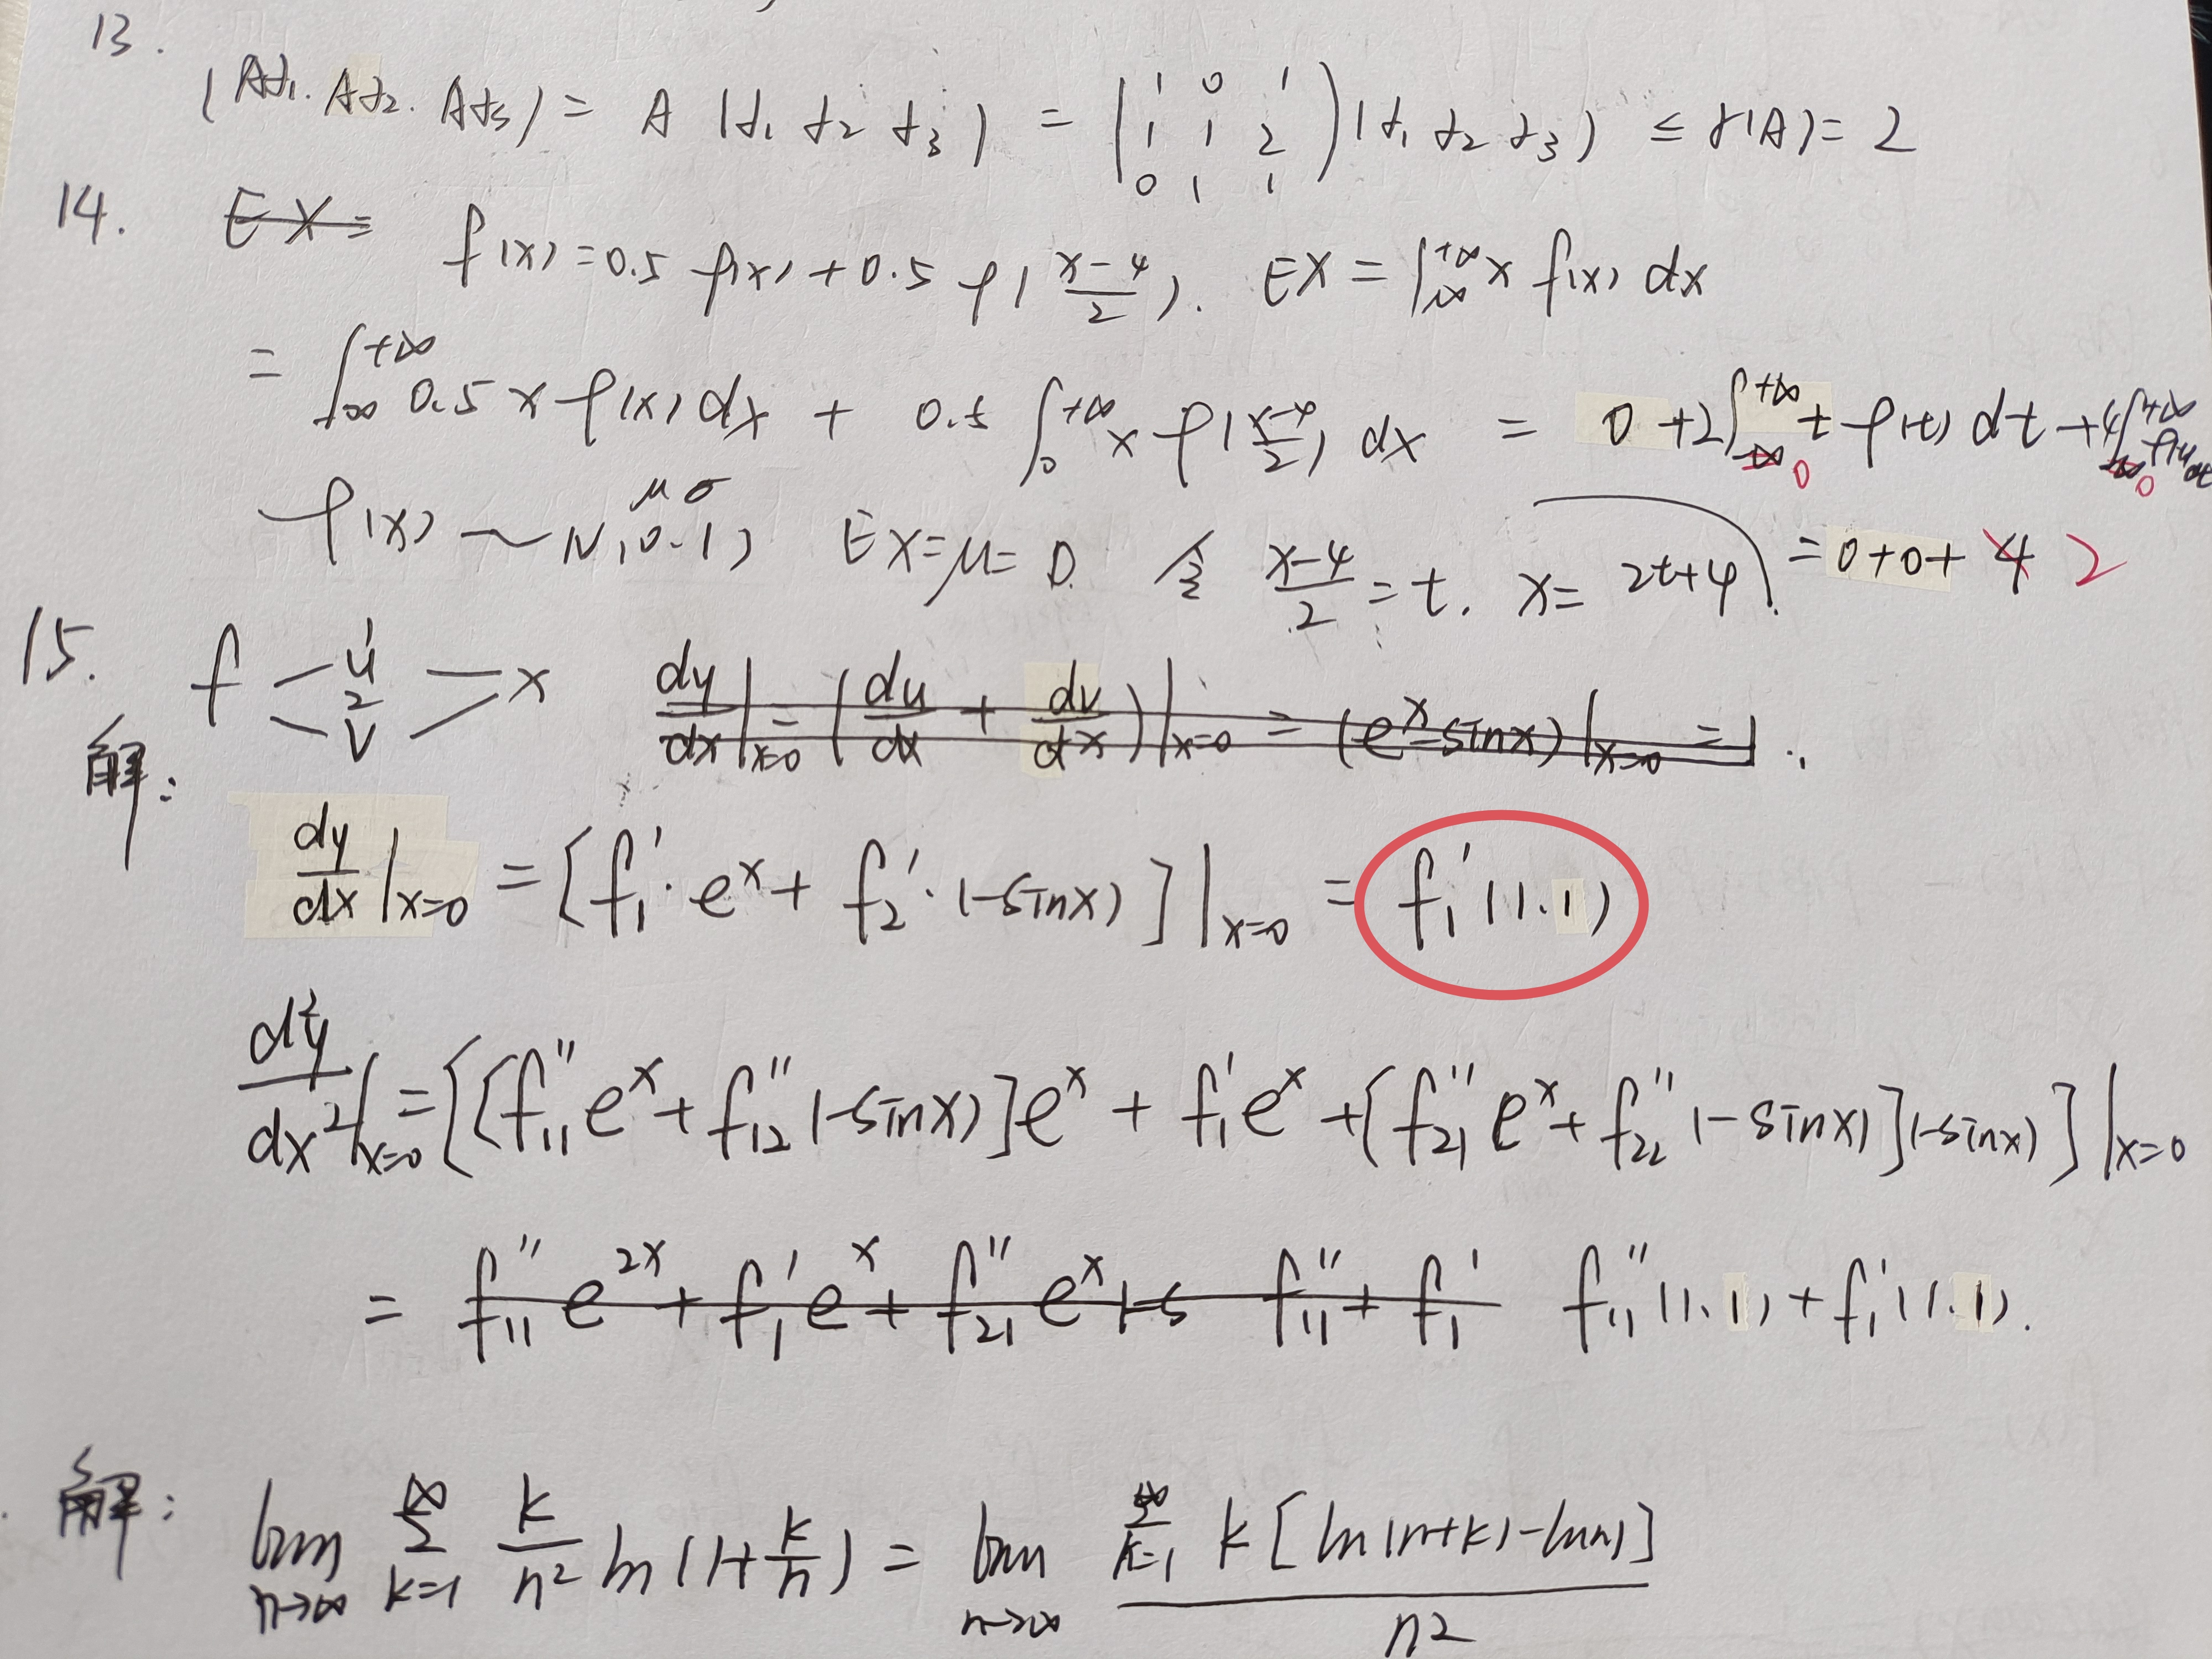 13.
(Aα₁. Aα₂. Aα₃) = A (α₁ α₂ α₃) = (1 0 1 / 1 1 2 / 0 1 1) (α₁ α₂ α₃) ≤ r(A) = 2
14. EX = f(x) = 0.5 φ(x) + 0.5 φ(x-4/2). EX = ∫_{-∞}^{+∞} x f(x) dx
= ∫_{-∞}^{+∞} 0.5 x φ(x) dx + 0.5 ∫_0^{+∞} x φ(x-4/2) dx = 0 + 2∫_{-∞ 0}^{+∞} t φ(t) dt + 4∫_{-∞ 0}^{+∞} φ(t) dt
φ(x) ~ N(0.1) μ σ EX = μ = 0. 令 x-4/2 = t. x = 2t+4. = 0+0+ 4 2
15. f u 1 2 v x dy/dx|x=0 = (du/dx + dv/dx)|x=0 = (e^x - sinx)|x=0 = 1.
解:
dy/dx|x=0 = [f₁' · e^x + f₂' · (-sinx)]|x=0 = f₁'(1.1)
d²y/dx²|x=0 = [[f₁₁'' e^x + f₁₂'' (-sinx)]e^x + f₁' e^x + [f₂₁'' e^x + f₂₂'' (-sinx)](-sinx)]|x=0
= f₁₁'' e^{2x} + f₁' e^x + f₂₁'' e^x (-s f₁₁'' + f₁' f₁₁''(1.1) + f₁'(1.1).
解: lim n→∞ ∑_{k=1}^{∞} k/n² ln(1+k/n) = lim n→∞ ∑_{k=1}^{∞} k[ln(n+k)-lnn] / n²